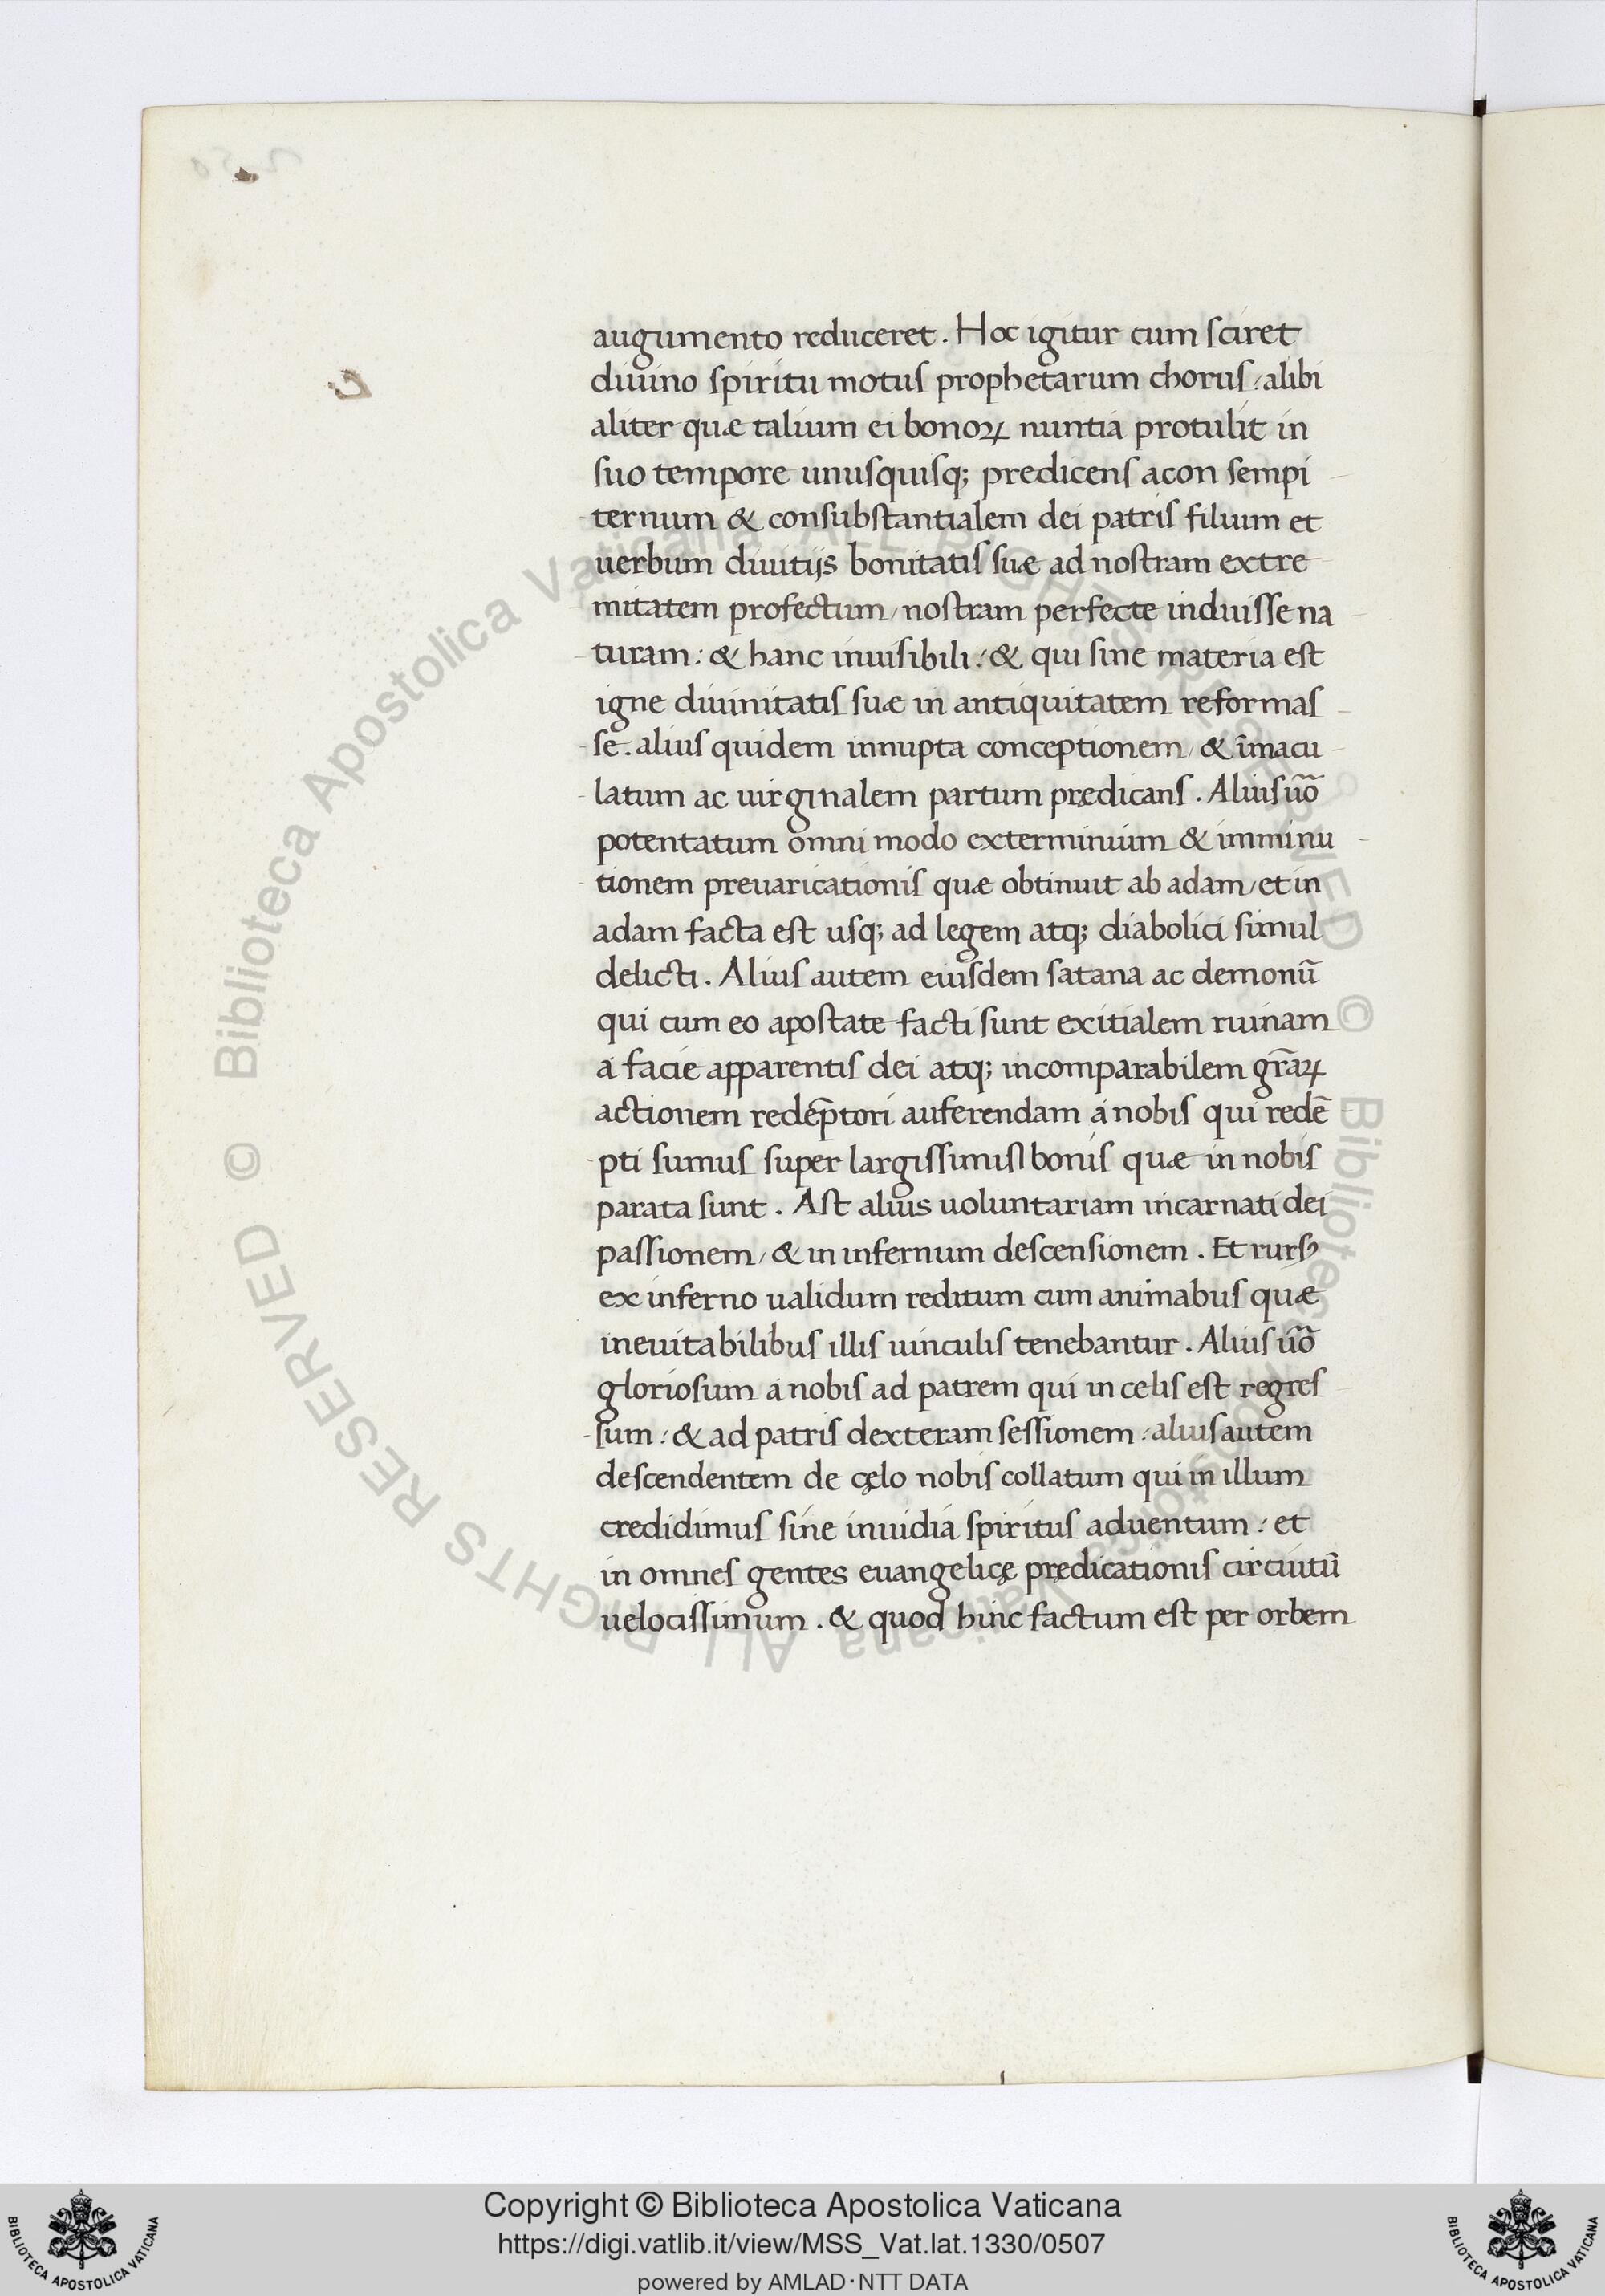 augumento reduceret. Hoc igitur cum sciret
diuino spiritu motus prophetarum chorus: alibi
aliter quæ talium ei bonoꝝ nuntia protulit in
suo tempore unusquisq; predicens acon sempi
ternum & consubstantialem dei patris filium et
uerbum diuitijs bonitatis suæ ad nostram extre
mitatem profectum / nostram perfecte induisse na
turam: & hanc inuisibili: & qui sine materia est
igne diuinitatis suæ in antiquitatem reformas
se. alius quidem innupta conceptionem / & īmacu
latum ac uirginalem partum prędicans. Alius uō
potentatum omni modo exterminium & imminu
tionem preuaricationis quæ obtinuit ab adam / et in
adam facta est usq; ad legem atq; diabolici simul
delicti. Alius autem eiusdem satana ac demonū
qui cum eo apostate facti sunt exitialem ruinam
a facie apparentis dei atq; incomparabilem gr̄aꝝ
actionem redēptori auferendam a nobis qui redē
pti sumus super largissimis bonis quæ in nobis
parata sunt. Ast alius uoluntariam incarnati dei
passionem / & in infernum descensionem. Et rursꝰ
ex inferno ualidum reditum cum animabus quæ
ineuitabilibus illis uinculis tenebantur. Alius uō
gloriosum a nobis ad patrem qui in celis est regres
sum: & ad patris dexteram sessionem: alius autem
descendentem de cęlo nobis collatum qui in illum
credidimus sine inuidia spiritus aduentum: et
in omnes gentes euangelicę prędicationis circuitū
uelocissimum. & quod hinc factum est per orbem
© Biblioteca Apostolica Vaticana ALL RIGHTS RESERVED © Biblioteca Apostolica Vaticana ALL RIGHTS RESERVED
BIBLIOTECA APOSTOLICA VATICANA
Copyright © Biblioteca Apostolica Vaticana
https://digi.vatlib.it/view/MSS_Vat.lat.1330/0507
powered by AMLAD·NTT DATA
BIBLIOTECA APOSTOLICA VATICANA